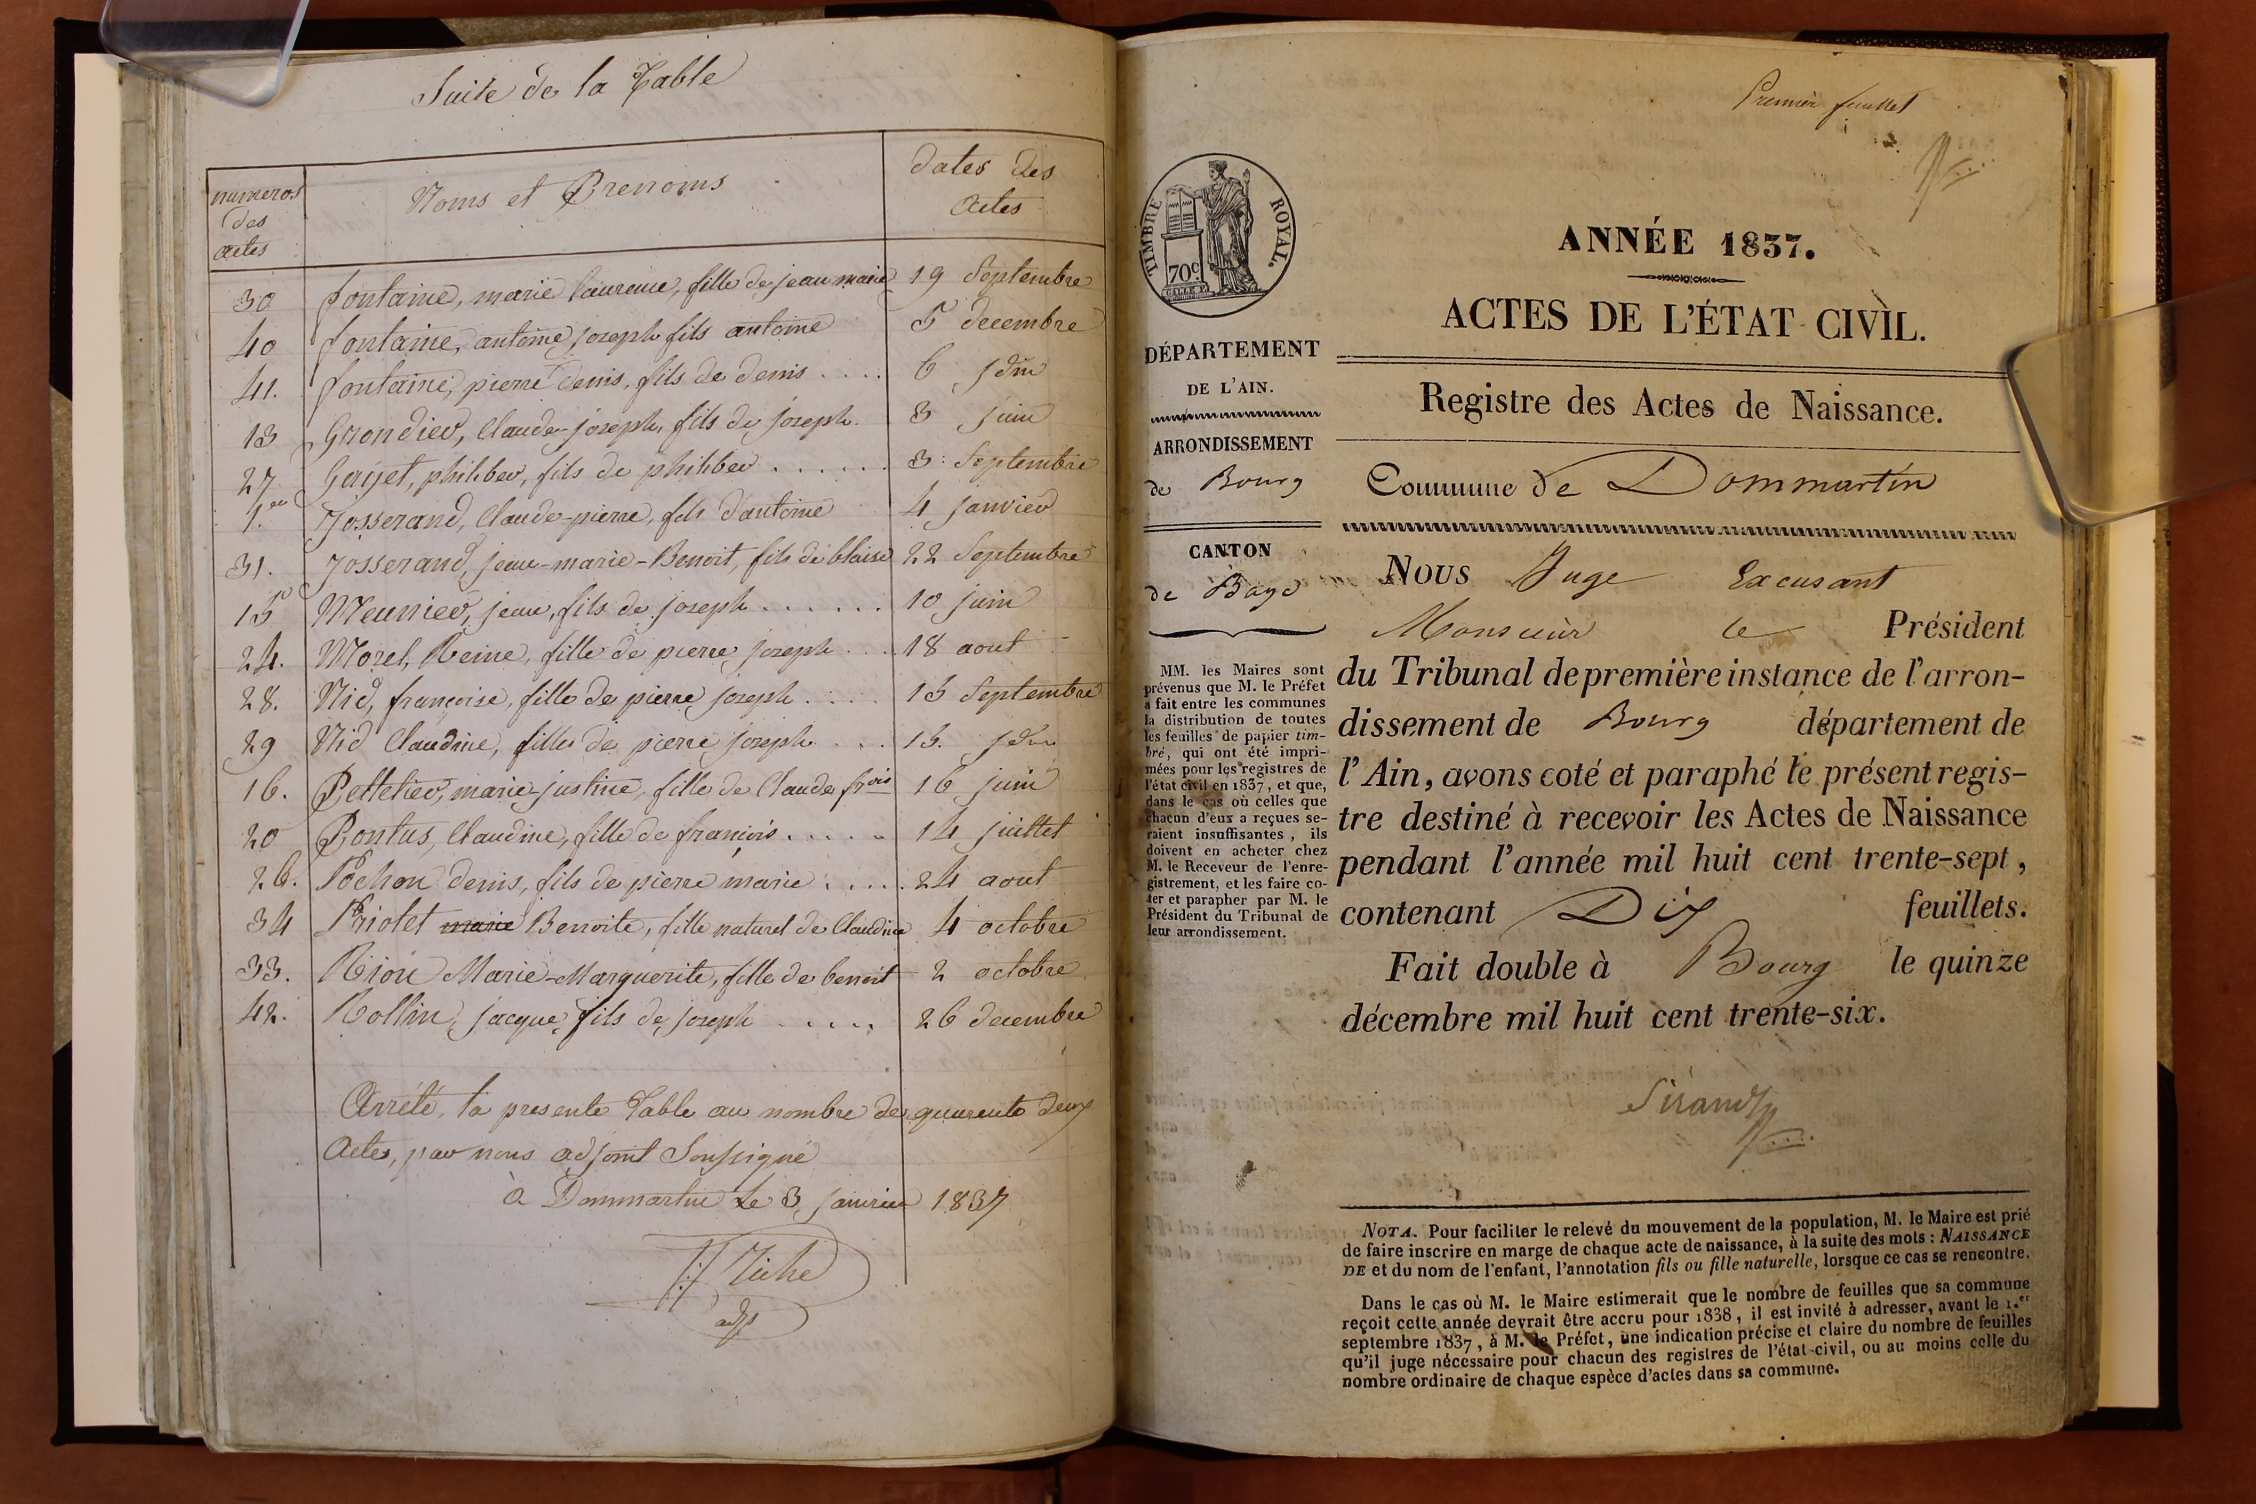 Suite de la Table
numeros des actes
Noms et Prenoms
dates des actes
30 fontaine, marie laurence, fille de jean marie 19 Septembre
40 fontaine, antoine joseph fils antoine 5 decembre
41. fontaine, pierre denis, fils de denis .... 6 jdm
13 Grondier, Claude-joseph, fils de joseph. 8 juin
27 Gayet, philiber, fils de philiber ...... 3 Septembre
1.er Josserand, Claude-pierre, fils d'antoine 4 janvier
31. Josserand, jean-marie-Benoit, fils de blaise 22 Septembre
15 Meunier, jean, fils de joseph ...... 10 juin
24. Morel, Reine, fille de pierre joseph ... 18 aout
28. Nid, françoise, fille de pierre joseph .... 13 Septembre
29 Nid Claudine, fille de pierre joseph ... 13. jdm
16. Pelletier, marie-justine, fille de Claude frois 16 juin
20 Pontus, Claudine, fille de francois ..... 14 juillet
26. Pochon denis, fils de pierre marie ..... 24 aout
34 Priolet marie Benoite, fille naturel de Claudine 4 octobre
33. Rion Marie-Marguerite, fille de benoit 2 octobre
42. Rollin, jacque, fils de joseph ..... 26 decembre
Arrêté, la presente Table au nombre de quarente deux
Actes, par nous adjoint Soussigné
à Dommartin le 3 janvier 1837
adj
Premier feuillet
TIMBRE ROYAL.
70c
ANNÉE 1837.
ACTES DE L'ÉTAT CIVIL.
DÉPARTEMENT
DE L'AIN.
ARRONDISSEMENT
de Bourg
CANTON
de Bagé
MM. les Maires sont
prévenus que M. le Préfet
a fait entre les communes
la distribution de toutes
les feuilles de papier tim-
bré, qui ont été impri-
mées pour les registres de
l'état civil en 1837, et que,
dans le cas où celles que
chacun d'eux a reçues se-
raient insuffisantes, ils
doivent en acheter chez
M. le Receveur de l'enre-
gistrement, et les faire co-
ter et parapher par M. le
Président du Tribunal de
leur arrondissement.
Registre des Actes de Naissance.
Commune de Dommartin
NOUS Juge Excusant
Monsieur le Président
du Tribunal de première instance de l'arron-
dissement de Bourg département de
l'Ain, avons coté et paraphé le présent regis-
tre destiné à recevoir les Actes de Naissance
pendant l'année mil huit cent trente-sept,
contenant Dix feuillets.
Fait double à Bourg le quinze
décembre mil huit cent trente-six.
Sirand
NOTA. Pour faciliter le relevé du mouvement de la population, M. le Maire est prié
de faire inscrire en marge de chaque acte de naissance, à la suite des mots : NAISSANCE
DE et du nom de l'enfant, l'annotation fils ou fille naturelle, lorsque ce cas se rencontre.
Dans le cas où M. le Maire estimerait que le nombre de feuilles que sa commune
reçoit cette année devrait être accru pour 1838, il est invité à adresser, avant le 1.er
septembre 1837, à M. le Préfet, une indication précise et claire du nombre de feuilles
qu'il juge nécessaire pour chacun des registres de l'état-civil, ou au moins celle du
nombre ordinaire de chaque espèce d'actes dans sa commune.